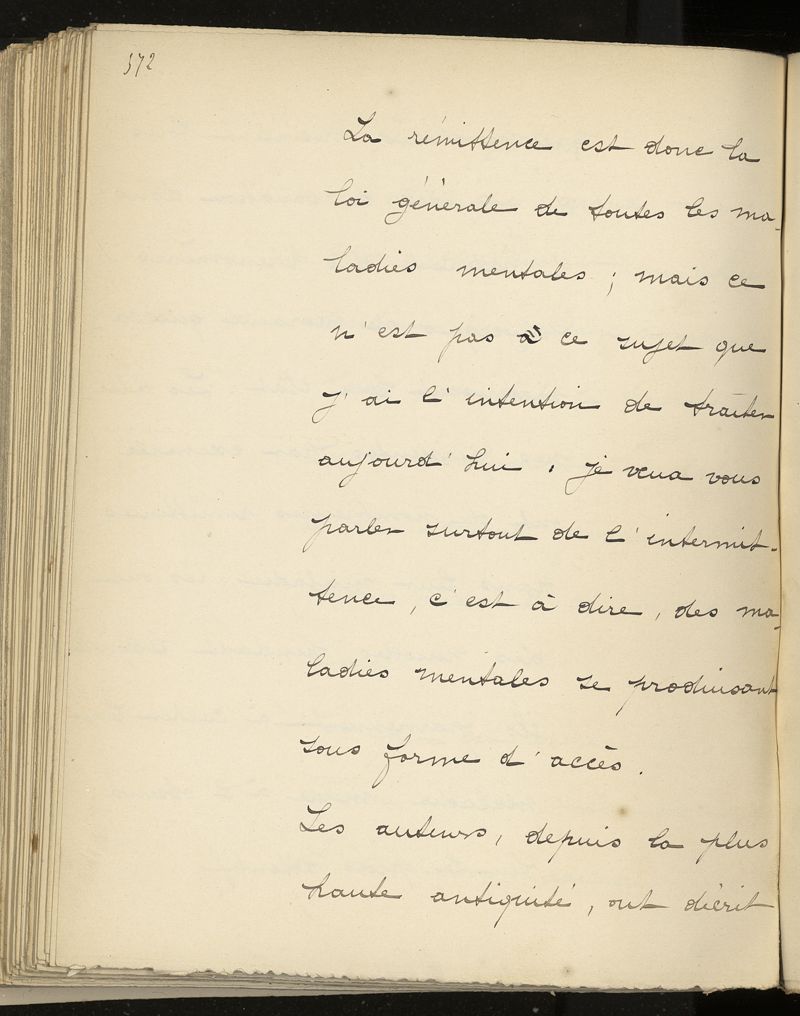 372
La rémittence est donc la
loi générale de toutes les ma-
ladies mentales ; mais ce
n'est pas à ce sujet que
j'ai l'intention de traiter
aujourd'hui, je veux vous
parler surtout de l'intermit-
tence, c'est à dire, des ma-
ladies mentales se produisant
sous forme d'accès.
Les auteurs, depuis la plus
haute antiquité, ont décrit